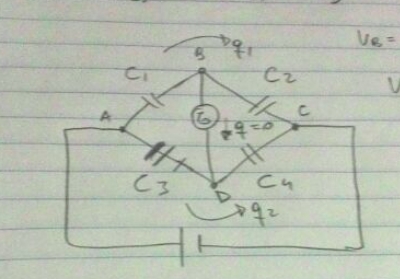 B q1
VB =
C1 C2
V
A G C
q=0
C3 C4
D
q2